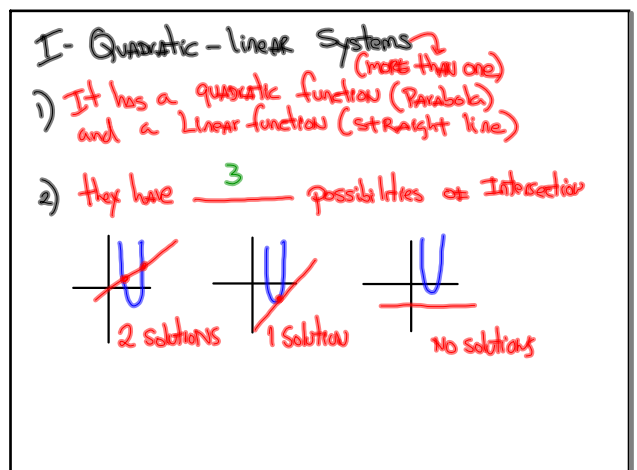 I- Quadratic-linear Systems
(more than one)
1) It has a quadratic function (Parabola)
and a Linear function (straight line)
2) they have 3 possibilities of Intersection
2 solutions 1 solution No solutions